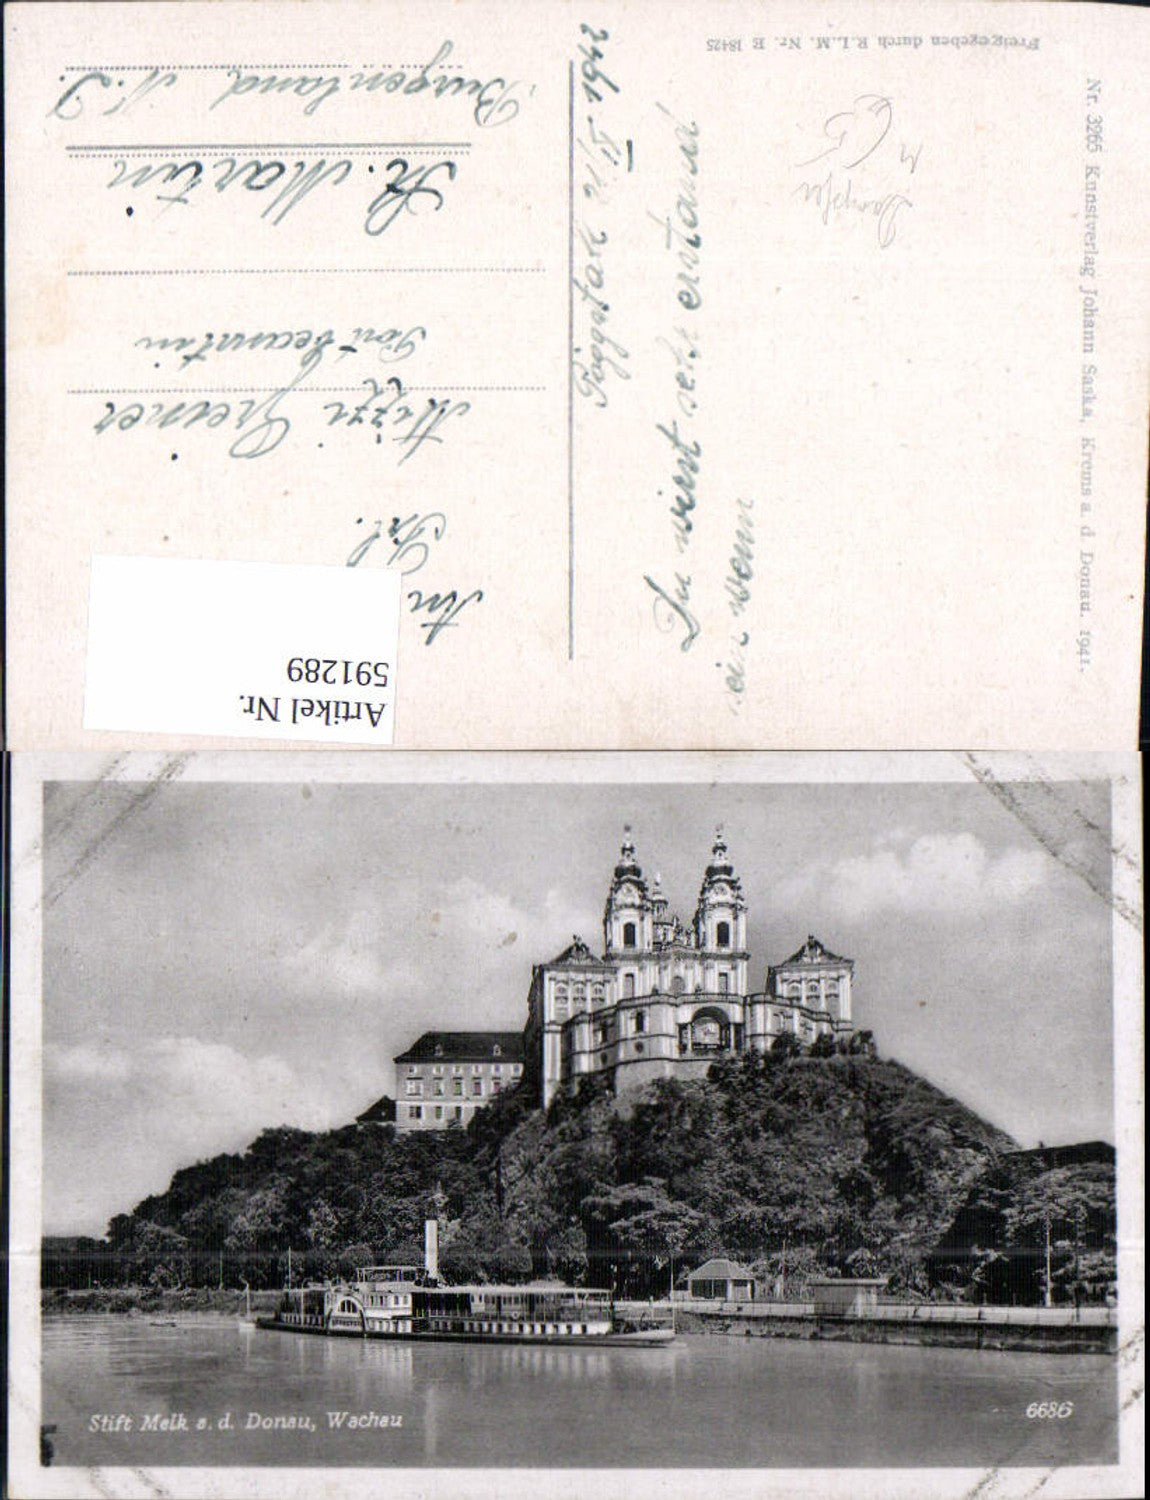 Freigegeben durch R.L.M. Nr. E 18425
Nr. 3265 Kunstverlag Johann Saska, Krems a. d. Donau. 1941.
Dampfer
Pöggstall 21/II. 1942
Du wirst sehr erstaund
sein wenn
An
Frl.
Mizzi Greiner
Postbeamtin
St. Martin
Burgenland, N. D.
Artikel Nr.
591289
Stift Melk a. d. Donau, Wachau
6686